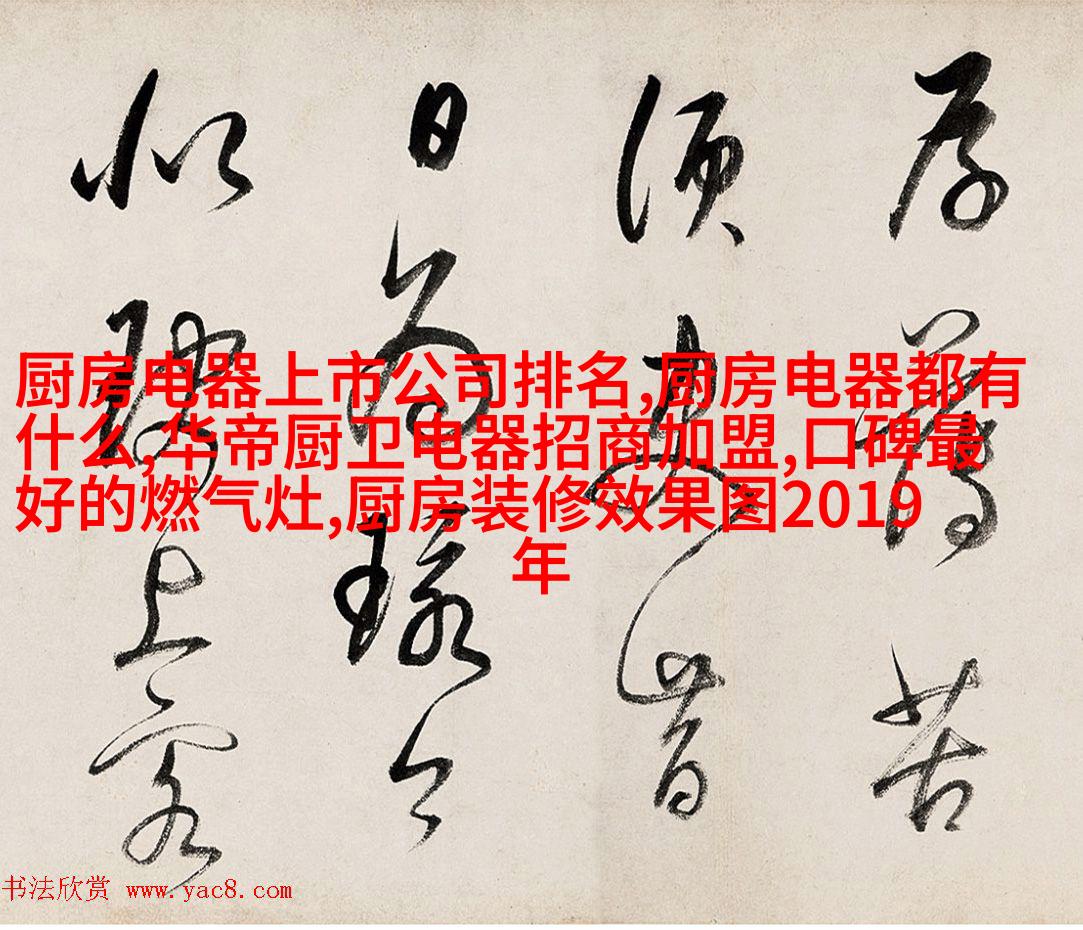 厨房电器上市公司排名,厨房电器都有
什么,华帝厨卫电器招商加盟,口碑最
好的燃气灶,厨房装修效果图2019
年
薄苦
须昔
日
似上客
书法欣赏 www.yac8.com